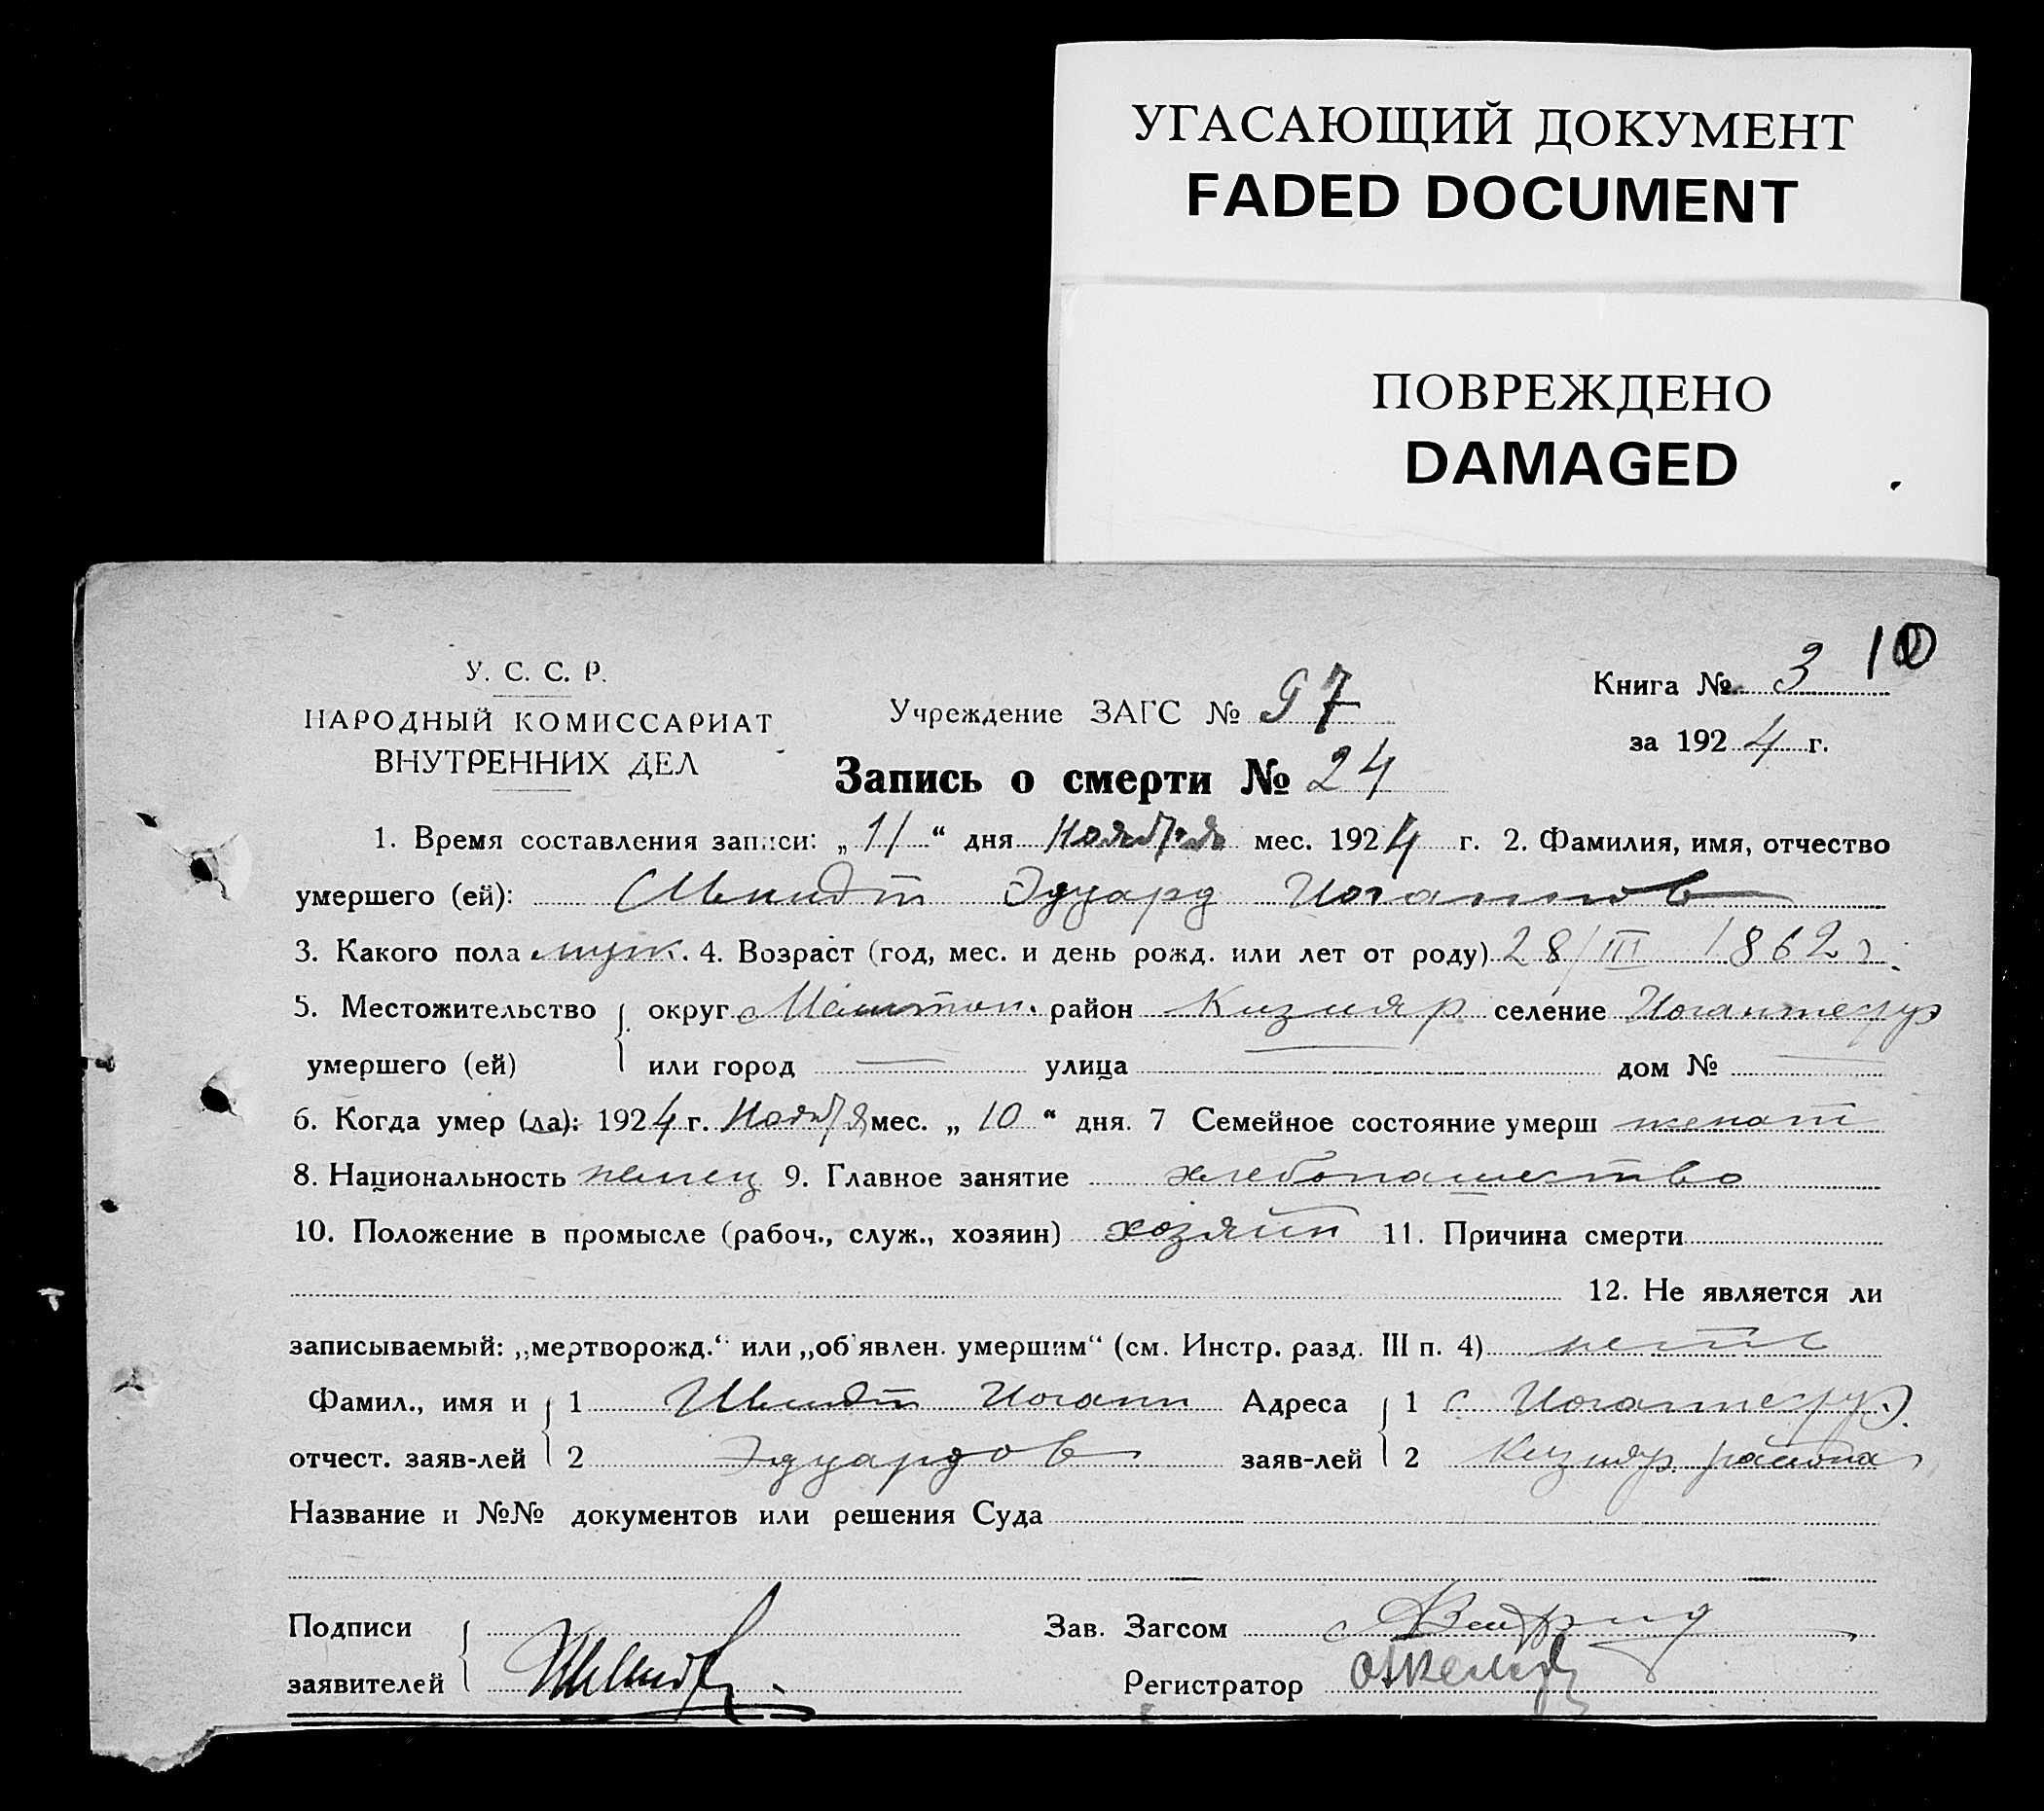 УГАСАЮЩИЙ ДОКУМЕНТ
FADED DOCUMENT
ПОВРЕЖДЕНО
DAMAGED
У. С. С. Р.
НАРОДНЫЙ КОМИССАРИАТ
ВНУТРЕННИХ ДЕЛ
Учреждение ЗАГС № 97
Книга № 3 10
за 1924 г.
Запись о смерти № 24
1. Время составления записи: „11“ дня Ноября мес. 1924 г. 2. Фамилия, имя, отчество
умершего (ей): Шмидт Эдуард Иоганнов
3. Какого пола муж. 4. Возраст (год, мес. и день рожд. или лет от роду) 28/III 1862 г.
5. Местожительство округ район Кизияр селение Иоганнесру
умершего (ей) или город — улица — дом № —
6. Когда умер (ла): 1924 г. Ноября мес. „ 10 “ дня. 7 Семейное состояние умерш женат
8. Национальность немец 9. Главное занятие хлебопашество
10. Положение в промысле (рабоч., служ., хозяин) хозяин 11. Причина смерти
12. Не является ли
записываемый: „мертворожд.“ или „об'явлен. умершим“ (см. Инстр. разд. III п. 4) нетъ
Фамил., имя и 1 Шмидт Иоганн Адреса 1 с Иоганнесру
отчест. заяв-лей 2 Эдуардов заяв-лей 2 Кизияр. района
Название и №№ документов или решения Суда
Подписи Зав. Загсом
заявителей Регистратор